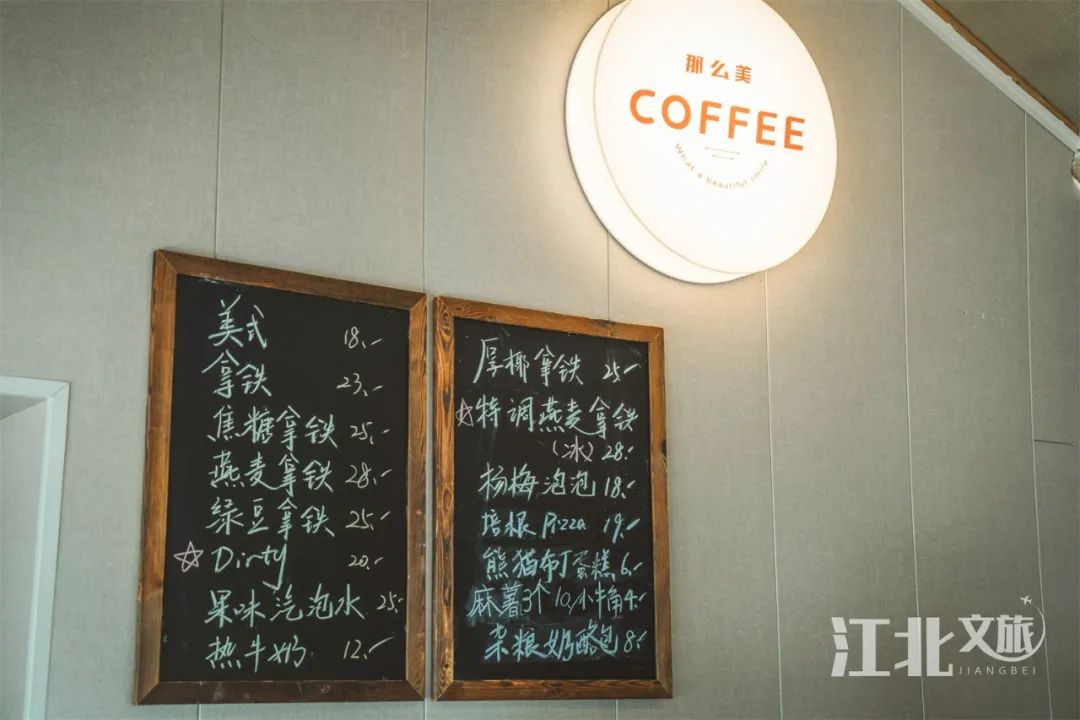 那么美
COFFEE
What a beautiful smile
美式 18.-
拿铁 23.-
焦糖拿铁 25.-
燕麦拿铁 28.-
绿豆拿铁 25.-
☆Dirty 20.-
果味汽泡水 25.-
热牛奶 12.-
厚椰拿铁 25.-
☆特调燕麦拿铁
(冰) 28.-
杨梅泡泡 18.-
培根Pizza 19.-
熊猫布丁蛋糕 6.-
麻薯3个10,小牛角4.-
杂粮奶酪包 8.-
江北文旅
JIANGBEI